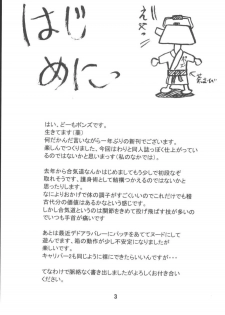 はじめに
はい、どーもポンズです。
生きてます(凛)
何だかんだ言いながら一年ぶりの新刊でございます。
楽しんでつくりました、今回はわりと同人誌っぽく仕上がってい
るのではないかと思いまっす(私のなかでは)
去年から合気道なんかはじめましてもう少しで初段なぞ
取れそうです、護身術として結構つかえるのではないかと
思ったりします。
なによりおかげで体の調子がすごくいいのでこれだけでも稽
古代分の価値はあるかなという感じです。
しかし合気道というのは関節をきめて投げ飛ばす技が多いの
でいつも手首が痛いです
あとは最近デドアラバレーにパッチをあててヌードにして
遊んでます、箱の動作が少し不安定になりましたが
楽しいです。
キャリバー2も同じように裸にできたらいいんですが・・・
てなわけで脈略なく書き出しましたがよろしくお付き合い
ください。
3